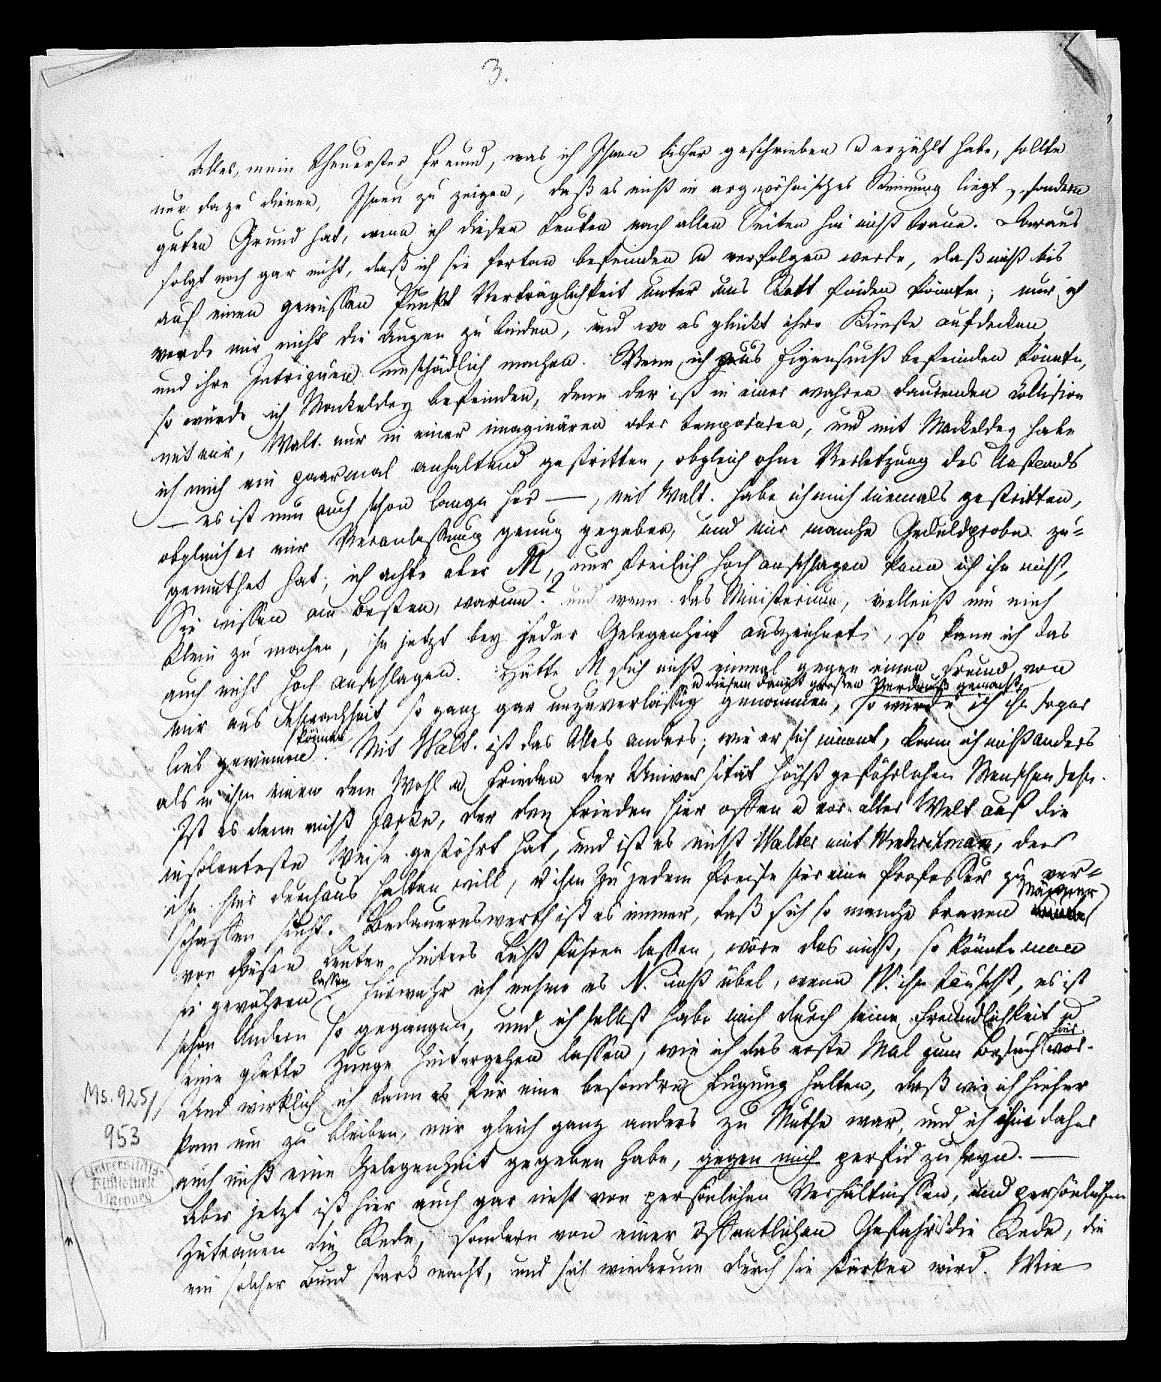 3.
Alles, mein theuerster Freund, was ich Ihnen bisher geschrieben u erzählt habe, sollte
nur dazu dienen, Ihnen zu zeigen, daß es nicht in argwöhnischer Stimmung liegt, sondern
guten Grund hat, wenn ich diesen Leuten nach allen Seiten hin nicht traue. Daraus
folgt noch gar nicht, daß ich sie fortan befeinden u verfolgen werde, daß nicht bis
auf einen gewissen Punkt Verträglichkeit unter uns Statt finden könnte; nur ich
werde mir nicht die Augen zu binden, und wo es glückt ihre Künste aufdecken,
und ihre Intriguen unschädlich machen. Wenn ich aus Eigensucht befeinden könnte,
so würde ich Mackeldey befeinden, denn der ist in einer wahren dauernden Collision
mit mir, Walt. nur in einer imaginären oder temporären, und mit Mackeldey habe
ich mich ein paarmal anhaltend gestritten, obgleich ohne Verletzung des Anstands
— es ist nun auch schon lange her —, mit Walt. habe ich mich niemals gestritten,
obgleich er mir Veranlassung genug gegeben, und mir manche Geduldprobe zu-
gemuthet hat; ich achte aber M, nur freilich hoch anschlagen kann ich ihn nicht,
Sie wissen am besten, warum? und wenn das Ministerium, vielleicht um mich
klein zu machen, ihn jetzt bey jeder Gelegenheit auszeichnet, so kann ich das
auch nicht hoch anschlagen. Hätte M sich nicht einmal gegen einen Freund von
u diesem damit großen Verdruß gemacht,
mir aus so ganz gar unzuverlässig genommen, so würde ich ihn sogar
können
lieb gewinnen. Mit Walt. ist das Alles anders; wie er sich nimmt, kann ich nicht anders
als in ihm einen dem Wohl u Frieden der Universität höchst gefährlichen Menschen sehn.
Ist es denn nicht Jarke, der den Frieden hier offen u vor aller Welt auf die
insolenteste Weise gestöhrt hat, und ist es nicht Walter mit Windischman, der
ihn hier durchaus halten will, u ihm zu jedem Preise hier eine Professur zu ver-
Männer
schaffen sucht. Bedauernswerth ist es immer, daß sich so manche braven
von diesen Leuten hinters Licht führen lassen, wäre das nicht, so könnte man
lassen
sie gewähren. Fürwahr ich nehme es N. nicht übel, wenn W. ihn täuscht, es ist
schon Andern so gegangen, und ich selbst habe mich durch seine Freundlichkeit u
hier
eine glatte Zunge hintergehen lassen, wie ich das erste Mal zum Besuch war.
Und wirklich ich kann es für eine besondre Fügung halten, daß wie ich hieher
kam um zu bleiben, mir gleich ganz anders zu Muthe war, und ich ihm daher
auch nicht eine Gelegenheit gegeben habe, gegen mich perfid zu seyn. —
Aber jetzt ist hier auch gar nicht von persönlichen Verhältnissen, und persönlichem
Zutrauen die Rede, sondern von einer öffentlichen Gefahr ist die Rede, die
ein solcher Bund stark macht, und sich wiederum durch sie stärken wird. Wie
Ms. 925/
953
Universitäts-
Bibliothek
Marburg